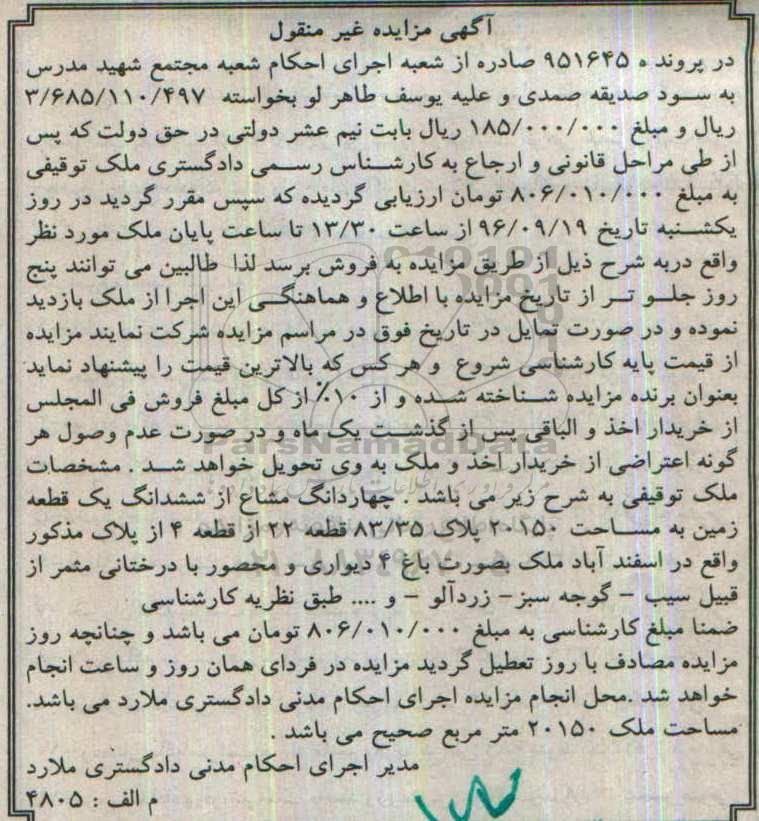 آگهی مزایده غیر منقول
در پرونده ۹۵۱۶۴۵ صادره از شعبه اجرای احکام شعبه مجتمع شهید مدرس
به سود صدیقه صمدی و علیه یوسف طاهر لو بخواسته ۳/۶۸۵/۱۱۰/۴۹۷
ریال و مبلغ ۱۸۵/۰۰۰/۰۰۰ ریال بابت نیم عشر دولتی در حق دولت که پس
از طی مراحل قانونی و ارجاع به کارشناس رسمی دادگستری ملک توقیفی
به مبلغ ۸۰۶/۰۱۰/۰۰۰ تومان ارزیابی گردیده که سپس مقرر گردید در روز
یکشنبه تاریخ ۹۶/۰۹/۱۹ از ساعت ۱۳/۳۰ تا ساعت پایان ملک مورد نظر
واقع دربه شرح ذیل از طریق مزایده به فروش برسد لذا طالبین می توانند پنج
روز جلو تر از تاریخ مزایده با اطلاع و هماهنگی این اجرا از ملک بازدید
نموده و در صورت تمایل در تاریخ فوق در مراسم مزایده شرکت نمایند مزایده
از قیمت پایه کارشناسی شروع و هر کس که بالاترین قیمت را پیشنهاد نماید
بعنوان برنده مزایده شناخته شده و از ۱۰٪ از کل مبلغ فروش فی المجلس
از خریدار اخذ و الباقی پس از گذشت یک ماه و در صورت عدم وصول هر
گونه اعتراضی از خریدار اخذ و ملک به وی تحویل خواهد شد . مشخصات
ملک توقیفی به شرح زیر می باشد . چهاردانگ مشاع از ششدانگ یک قطعه
زمین به مساحت ۲۰۱۵۰ پلاک ۸۳/۳۵ قطعه ۲۲ از قطعه ۴ از پلاک مذکور
واقع در اسفند آباد ملک بصورت باغ ۴ دیواری و محصور با درختانی مثمر از
قبیل سیب - گوجه سبز- زردآلو - و .... طبق نظریه کارشناسی
ضمنا مبلغ کارشناسی به مبلغ ۸۰۶/۰۱۰/۰۰۰ تومان می باشد و چنانچه روز
مزایده مصادف با روز تعطیل گردید مزایده در فردای همان روز و ساعت انجام
خواهد شد .محل انجام مزایده اجرای احکام مدنی دادگستری ملارد می باشد.
مساحت ملک ۲۰۱۵۰ متر مربع صحیح می باشد .
مدیر اجرای احکام مدنی دادگستری ملارد
م الف : ۴۸۰۵
ParsNamadData